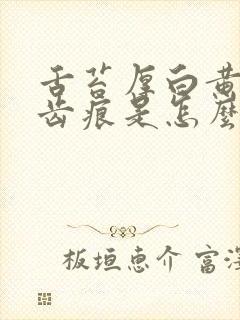 舌苔厚白黄
齿痕是怎麽
板垣惠介 富深